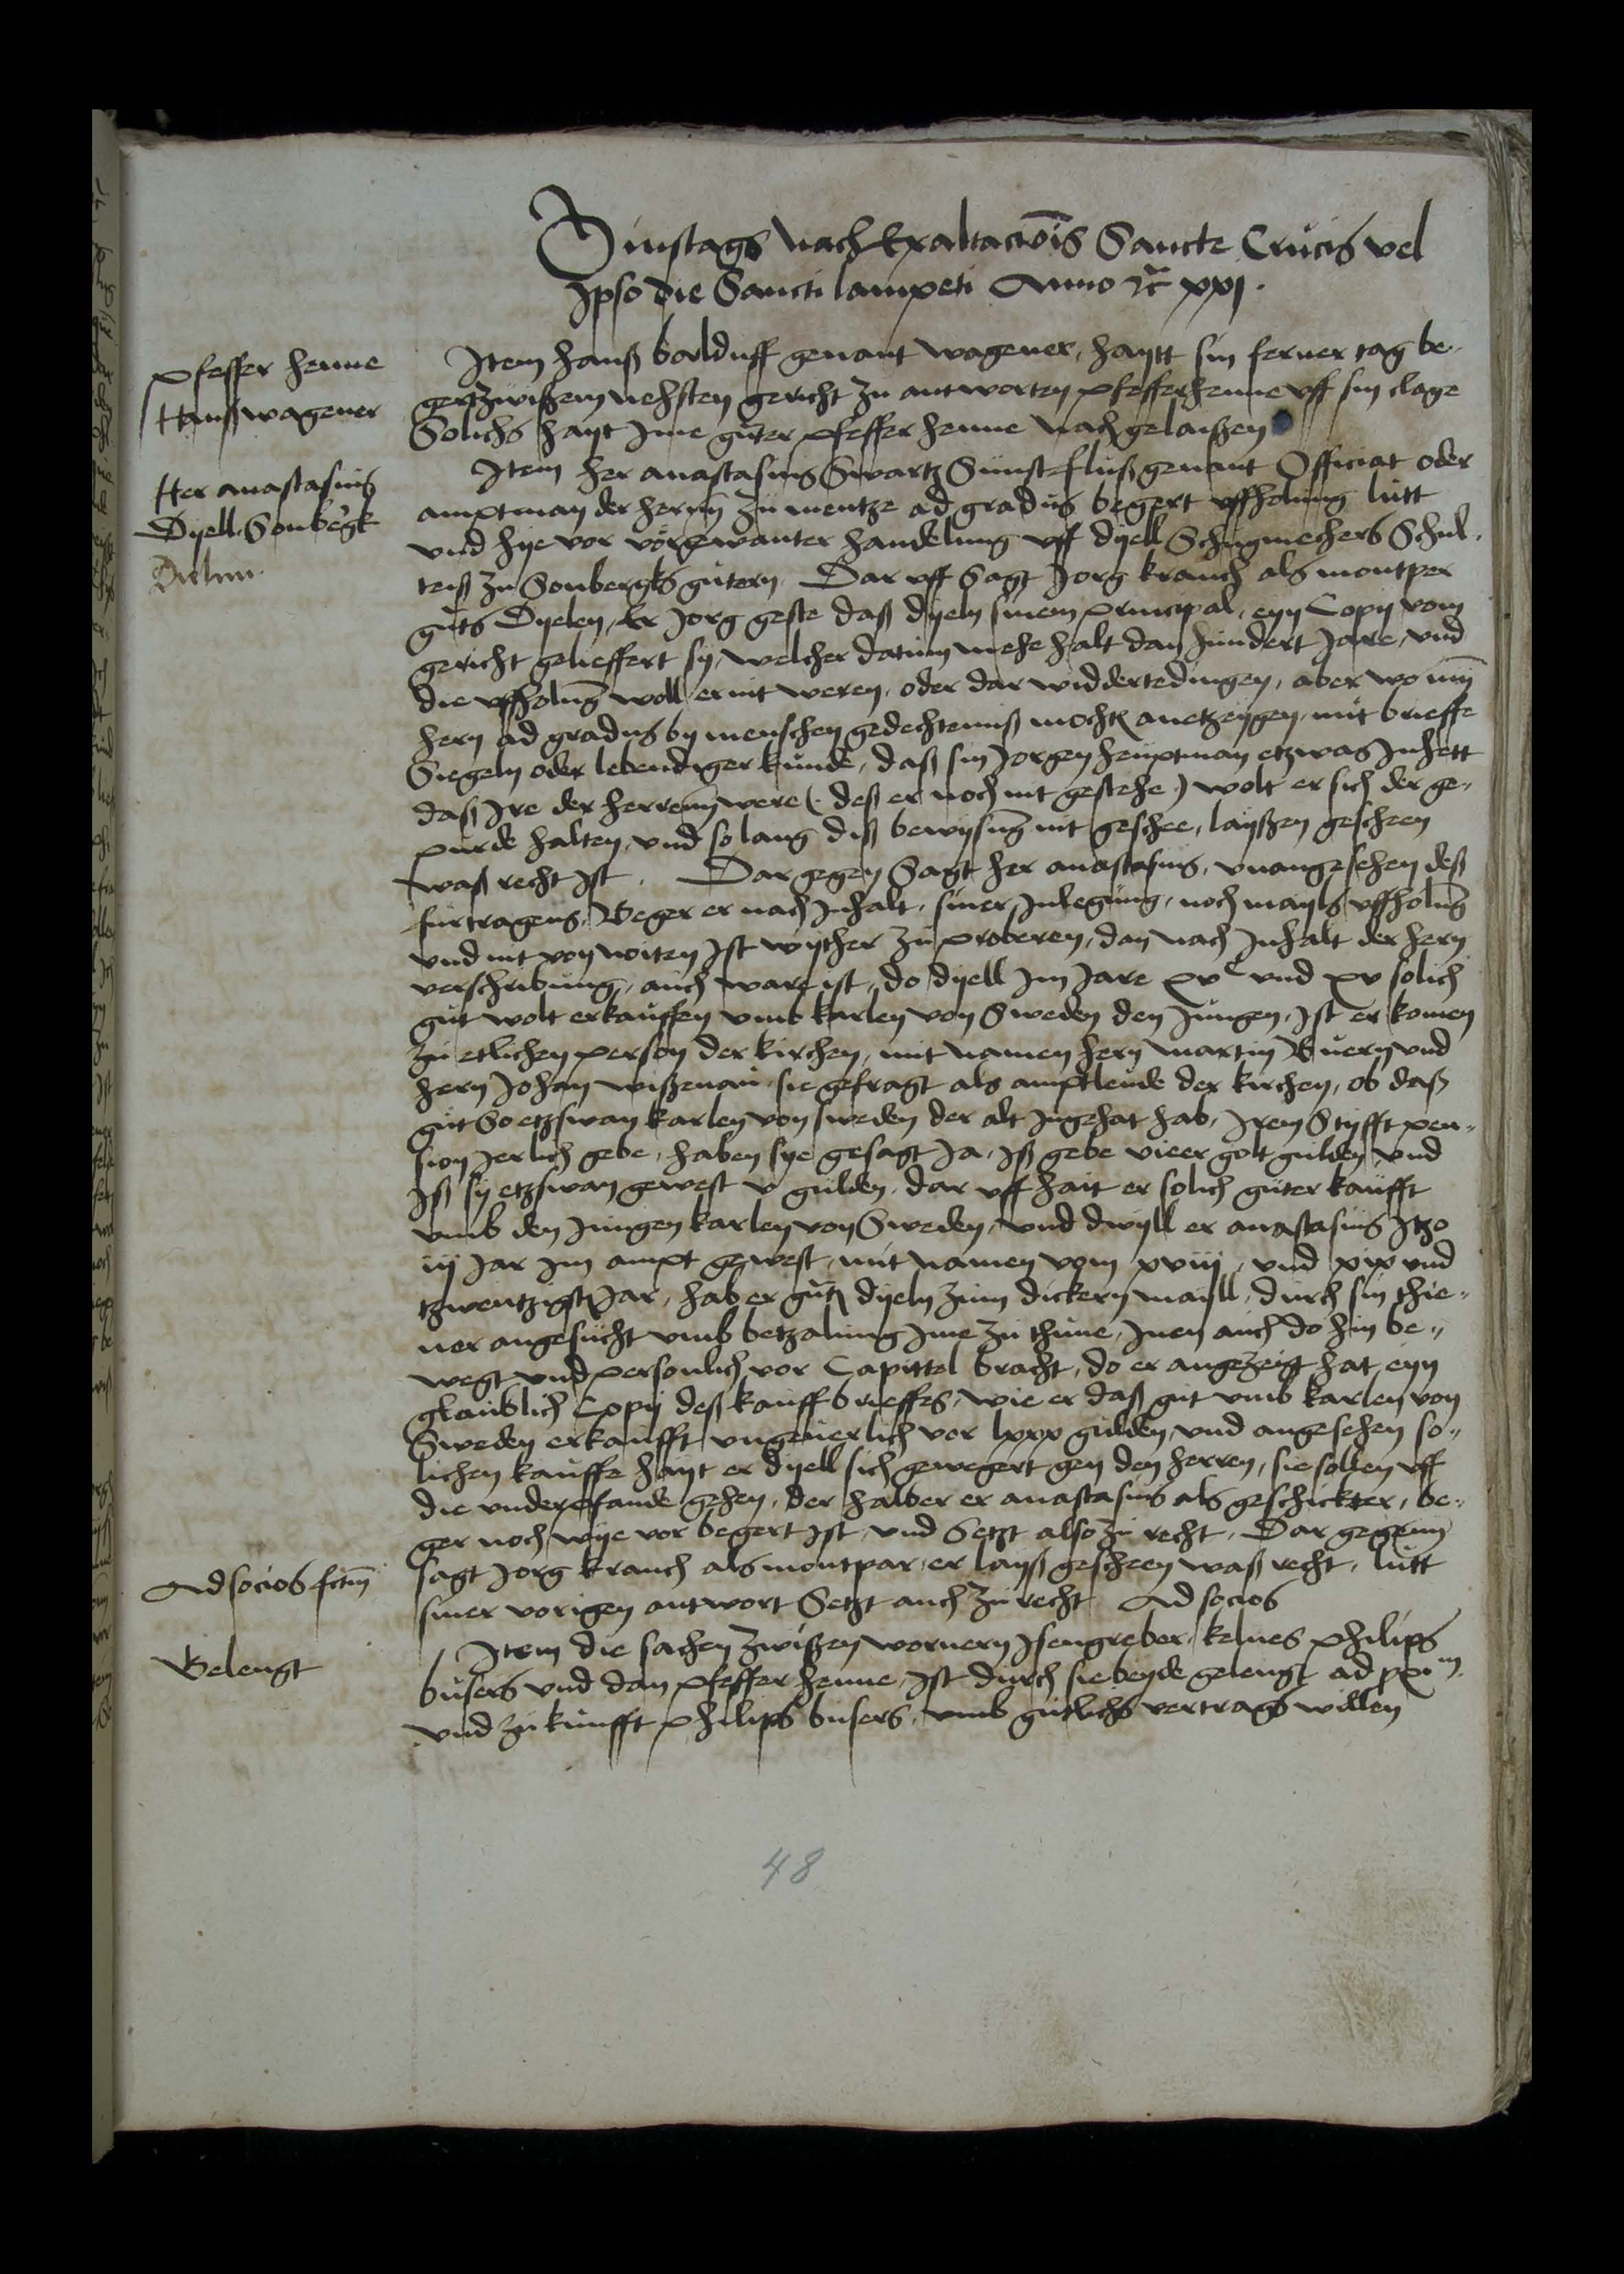 Dinstags Nach Exaltacōis Sancte Crucis vel
Ipso die Sancti lamperti Anno ꝛc̄ xxj.
Pfeffer henne
Hanß wagener
Item hanß balduff genant wagener, haytt sin ferner tag be-
gert zwißem nehsten gericht zu antworten Pfefferhenne vff sin clage
Solichs hayt Ime guter Pfeffer henne Nach gelaißen
Her anastasius
Dyell Sonbergk
Item her anastasius Swartz genant Officiat oder
amptman der hernn zu mentze ad gradus begert vffholung lutt
vnd hye vor vorgewanter handelung vff dyell Schugmechers Schul-
teiß zu Sonbergks gutern. Dar vff Sagt Jorg krauch als montper
guts Dyelen, Er Jorg geste daß dyeln sinem Principal, eyn Copy vom
gericht gelieffert sy, welcher datum mehe halt dan hundert Jare, vnd
die vffholung woll er nit weren, oder dar widdertedingen, aber wo myn
hern ad gradus by menschen gedechteniß mochten anetzeygen, mit brieffe
Siegeln oder lebendiger kunde, daß sin Jorgen heuptman etzwas Inhett
daß Ire der herrenn were (deß er noch nit gestehe) wolt er sich der ge-
purde halten, vnd so lang diß bewysung nit geschee, layßen gescheen
waß recht ist. Dar gegen Sagt her anastasius, vnangesehen deß
furtragens, Beger er nach Inhalt siner Inlegung, noch mayls vffholung
vnd nit von noiten Ist wyther zu proberen, dan nach Inhalt der hern
verschribung, auch ware ist, do dyell Im Jare xvc vnd xv solich
gut wolt erkauffen vmb karlen von Sweden den Jungen, Ist er komen
zu etlichen person der kirchen, mit namen hern Martin Buern vnd
hern Johan wißenau sie gefragt als amptleude der kirchen, ob daß
gut So etzwan karlen von sweden der alt Ingehat hab, Irem Styfft pen-
sion Jerlich gebe, haben sye gesagt Ja, Iß gebe vieer golt gulden vnd
Iß sy etzwan gewest v gulden, dar vff hait er solich guter kaufft
vmb den Jungen karlen von Sweden, vnd dwyll er anastasius Itzo
iij Jar Im ampt gewest, mit namen vom xviij, vnd xix vnd
tzwentzigsten Jar, hab er guten dyeln zum dickern mayll, durch sin thie-
ner angesucht vmb betzalung Ime zu thune, Inen auch do hin be-
wegt vnd personlich vor Capittel bracht, do er angezeigt hat eyn
glaublich Copy deß kauffbrieffes, wie er daß gut vmb karlen von
Sweden erkaufft vngeuerlich vor lxxx gulden, vnd angesehen so-
lichen kauffe hayt er dyell sich gewegert gen den herren, sie sollen vff
die vnderpfande gehen, der halber er anastasius als geschickter, be-
ger noch wye vor begert ist, vnd Setzt also zu recht. Dar gegenn
Ad socios fctm̄
sagt Jorg krauch als montpar, er layß gescheen waß recht, lutt
siner vorigen antwort Setzt auch zu recht Ad socios
Gelengt
Item die sachen zwißen wornern Isengreber, kelners Philips
busers vnd dan Pfeffer henne, Ist durch sie beyde gelengt ad xxi m
vnd zukunfft Philips busers, vmb gutlichs vertrags willen
48